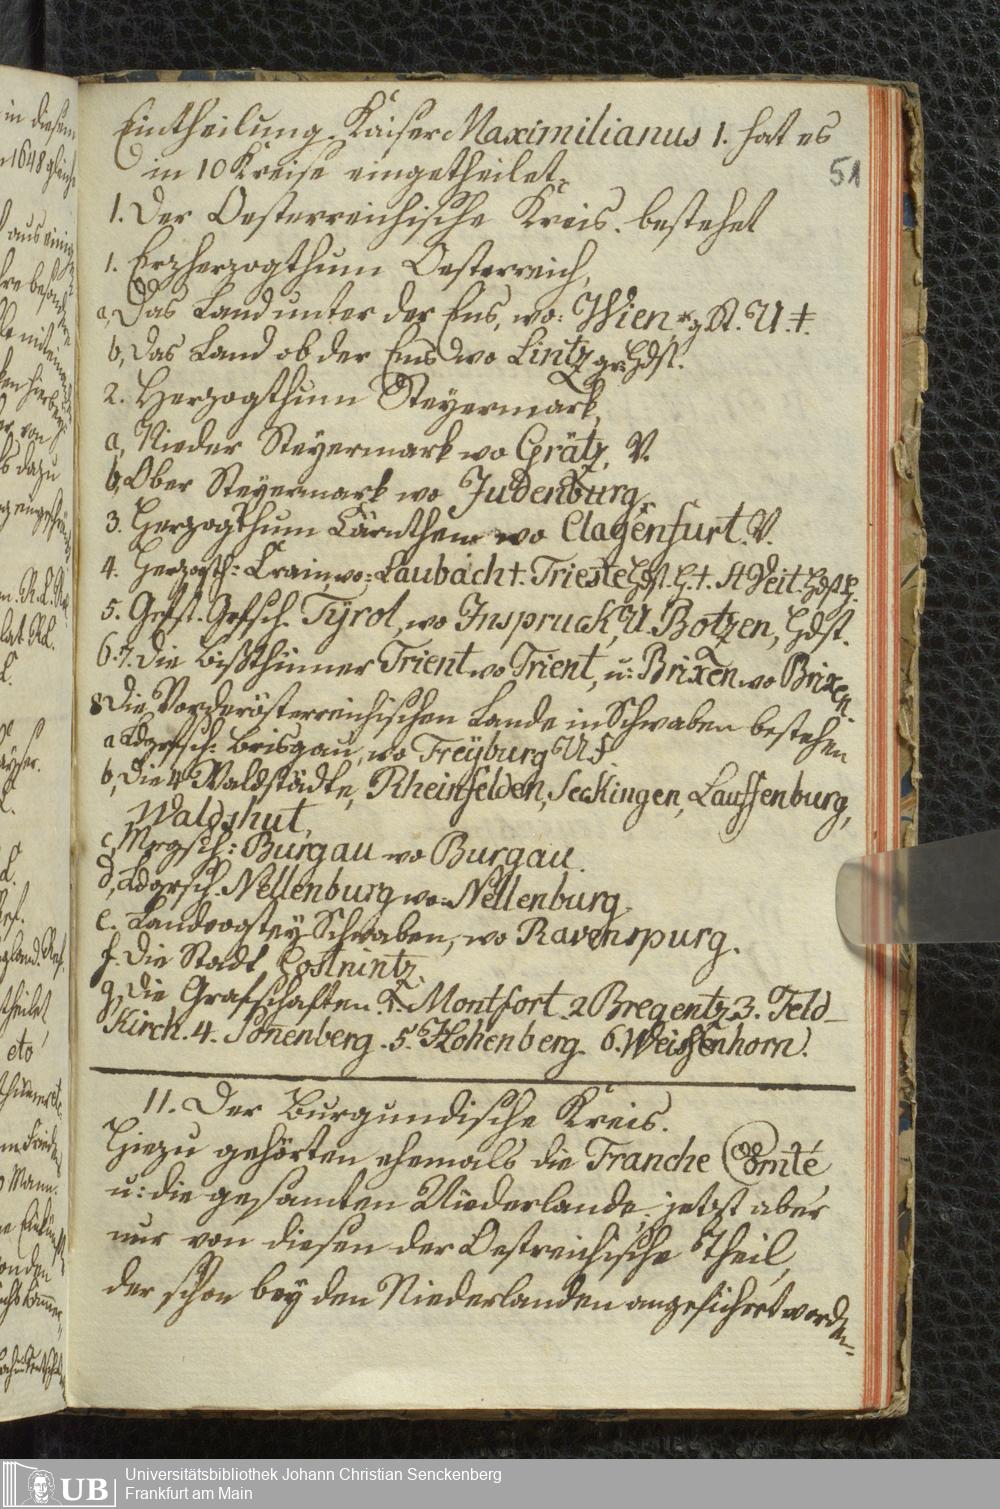 Eintheilung. Kaiser Maximilianus 1. hat es
in 10 Kreise eingetheilet.
51
1. Der Oesterreichische Kreis. bestehet
1. Erzherzogthum Oesterreich,
a, Das Land unter der Ens, wo: Wien, U. ‡.
b, Das Land ob der Ens wo Lintz Hdst.
2. Herzogthum Steyermark,
a, Nieder Steyermark wo Grätz, V.
b, Ober Steyermark wo Judenburg,
3. Herzogthum Kärnthen wo Clagenfurt. V.
4. Herzogth: Crain wo: Laubach †. Trieste Hdst. H. †. St Veit. Hdst
5. Gefst. Grfsch. Tÿrol, wo Inspruck, U. Botzen, Hdst.
6. 7. Die bißthümer Trient wo Trient, u: Brixen wo Brixen.
8 Die Vorderösterreichischen Lande in Schwaben bestehen
a Ldgrfsch: Brisgau, wo Freÿburg U. f.
b, Die 4 Waldstädte, Rheinfelden, Seckingen, Lauffenburg,
Waldshut,
c, Mrgsch: Burgau wo Burgau.
d, Ldgrsch. Nellenburg wo: Nellenburg.
e. Landvogtey Schwaben, wo Ravenspurg.
f. Die Stadt Costnintz.
g, Die Grafschaften. 1. Montfort. 2 Bregentz 3. Feld-
Kirch. 4. Sonenberg. 5. Hohenberg. 6. Weissenhorn.
11. Der Burgundische Kreis.
Hiezu gehörten ehemals die Franche Comté
u: die gesamten Niederlande, jetzt aber
nur von diesen der Oestreichische Theil,
der schon bey den Niederlanden angeführet worden.
UB
Universitätsbibliothek Johann Christian Senckenberg
Frankfurt am Main